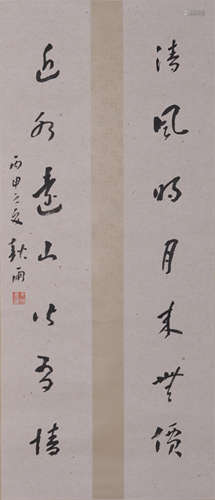 清風明月本無價
近水遠山皆有情
丙申之夏